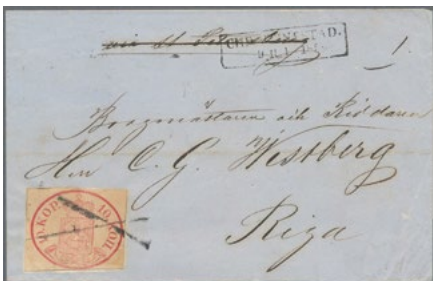 via St
CHRISTINESTAD.
1.
Borgmästaren och Riddaren
Herr C. G. Westberg
Riga
10. KOP. 10 КОП.